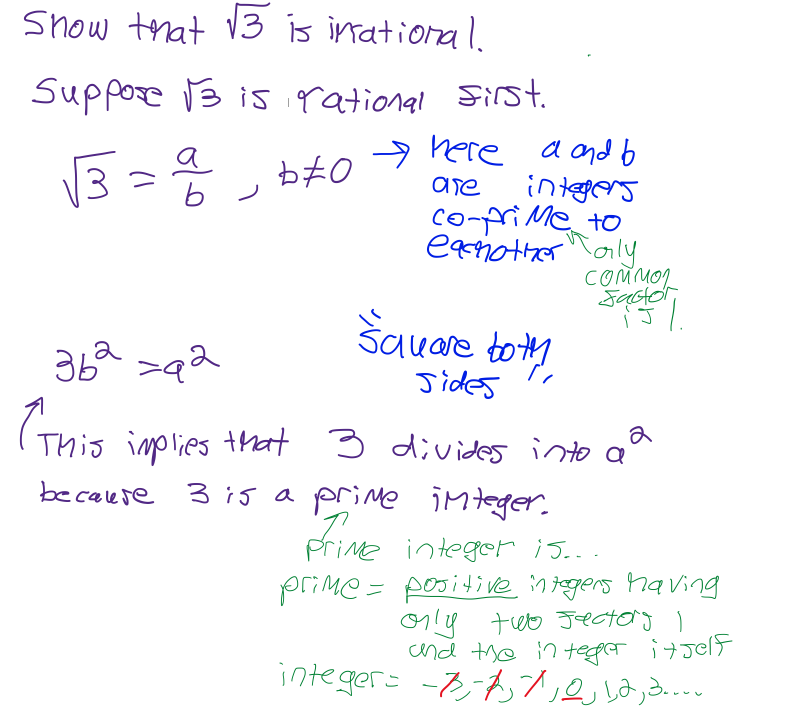 Show that √3 is irrational.
Suppose √3 is rational first.
√3 = a/b , b≠0
→ here a and b
are integers
co-prime to
eachother
only
common
factor
is 1.
3b² = a²
"Square both
sides"
This implies that 3 divides into a²
because 3 is a prime integer.
prime integer is...
prime = positive integers having
only two factors 1
and the integer itself
integer = -3, -2, -1, 0, 1, 2, 3....